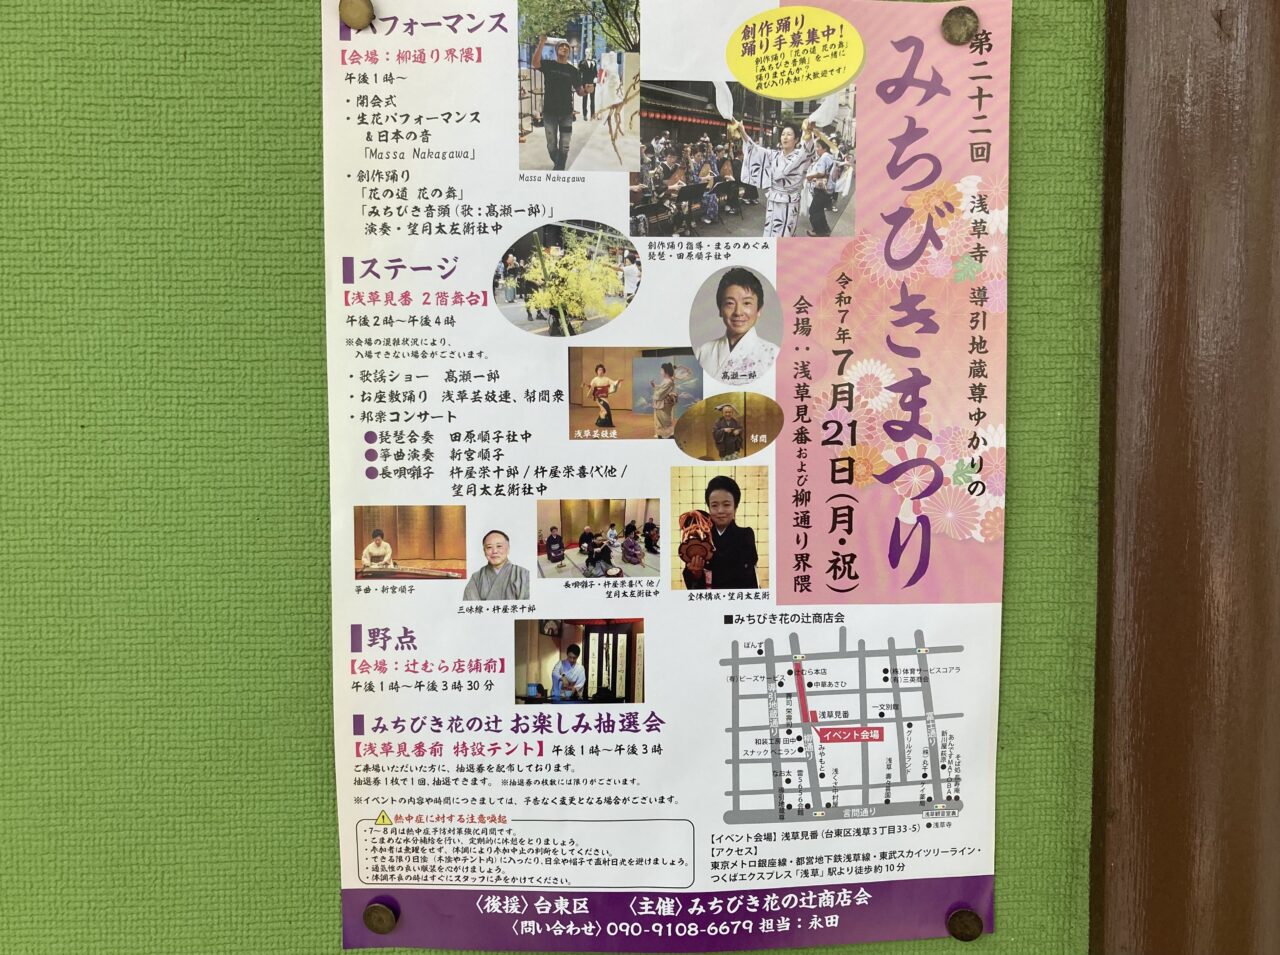 第二十二回 浅草寺 導引地蔵尊ゆかりの
みちびきまつり
令和7年7月21日(月・祝)
会場:浅草見番および柳通り界隈
創作踊り
踊り手募集中!
創作踊り「花の道 花の舞」
「みちびき音頭」を一緒に
踊りませんか?
飛び入り参加!大歓迎です!
パフォーマンス
【会場:柳通り界隈】
午後1時〜
・開会式
・生花パフォーマンス
&日本の音
「Massa Nakagawa」
・創作踊り
「花の道 花の舞」
「みちびき音頭(歌:髙瀬一郎)」
演奏・望月太左衛社中
Massa Nakagawa
創作踊り指導・まるのめぐみ
琵琶・田原順子社中
ステージ
【浅草見番 2階舞台】
午後2時〜午後4時
※会場の混雑状況により、
入場できない場合がございます。
・歌謡ショー 髙瀬一郎
・お座敷踊り 浅草芸妓連、幇間衆
・邦楽コンサート
●琵琶合奏 田原順子社中
●箏曲演奏 新宮順子
●長唄囃子 杵屋栄十郎/杵屋栄喜代他/
望月太左衛社中
髙瀬一郎
浅草芸妓連
幇間
箏曲・新宮順子
三味線・杵屋栄十郎
長唄囃子・杵屋栄喜代 他/
望月太左衛社中
全体構成・望月太左衛
野点
【会場:辻むら店舗前】
午後1時〜午後3時30分
みちびき花の辻 お楽しみ抽選会
【浅草見番前 特設テント】午後1時〜午後3時
ご来場いただいた方に、抽選券を配布しております。
抽選券1枚で1回、抽選できます。 ※抽選券の枚数には限りがございます。
※イベントの内容や時間につきましては、予告なく変更となる場合がございます。
熱中症に対する注意喚起
・7〜8月は熱中症予防対策強化月間です。
・こまめな水分補給を行い、定期的に休憩をとりましょう。
・参加者は無理をせず、体調により参加中止の判断をしてください。
・できる限り日陰(木陰やテント内)に入ったり、日傘や帽子で直射日光を避けましょう。
・通気性の良い服装を心がけましょう。
・体調不良の時はすぐにスタッフに声をかけてください。
■みちびき花の辻商店会
ぽんず
辻むら本店
(有)ビーズサービス
中華あさひ
(株)体育サービスコアラ
(有)三英商会
浅草見番
一文別館
イベント会場
和装工房 田中
スナック ベニラン
柳通り
みやもと
グリルグランド
富士通り
なお太
言問通り
浅草寺
【イベント会場】浅草見番(台東区浅草3丁目33-5)
【アクセス】
東京メトロ銀座線・都営地下鉄浅草線・東武スカイツリーライン・
つくばエクスプレス「浅草」駅より徒歩約10分
〈後援〉台東区 〈主催〉みちびき花の辻商店会
〈問い合わせ〉090-9108-6679 担当:永田